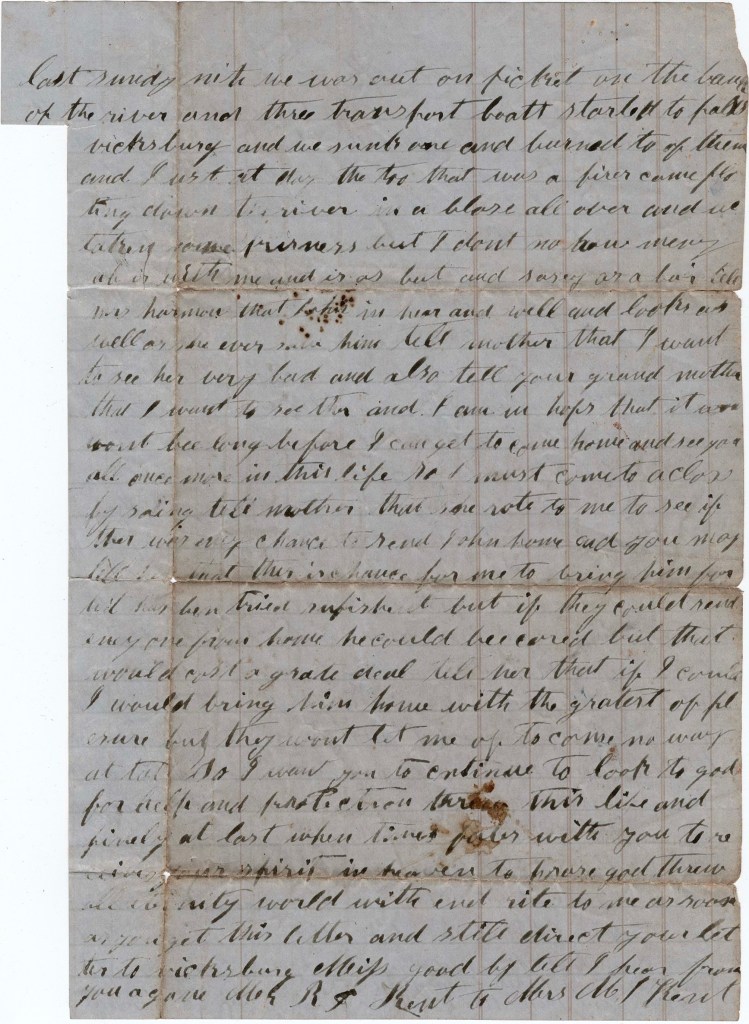 last sundy nite we was out on picket on the bank
of the river and three transport boatt started to pass
vicksburg and we sunk one and burned to of them
and Just at day the too that was a fier came flo
ting down the river in a blase all over and we
taken some prisness but I dont no how meny
ab is with me and is as but and sasey as a bar tell
mrs harmon that is in hear and well and looks as
well as she ever saw him tell mother that I want
to see her very bad and also tell your grand mother
that I want to see her and I am in hops that it
wont bee long before I can get to come home and see you
all once more in this life so I must come to a close
by saiing tell mother that she rote to me to see if
ther was eny chance to send John home and you may
tell her that ther is chance for me to bring him for
it has ben tried sufishent but if they could send
eney one from home he could bee cored but that
would cost a grate deal tell her that if I could
I would bring him home with the gratest of pl
esure but they wont let me of to come no way
at tol so I want you to cntinue to look to god
for help and protection threw this life and
finely at last when times with you to re
your spirit in heaven to prase god threw
all world with end rite to me as soon
as you get this letter and still direct your let
ter to vicksburg Miss good by till I hear from
you agane R Kent to Mrs M J Kent